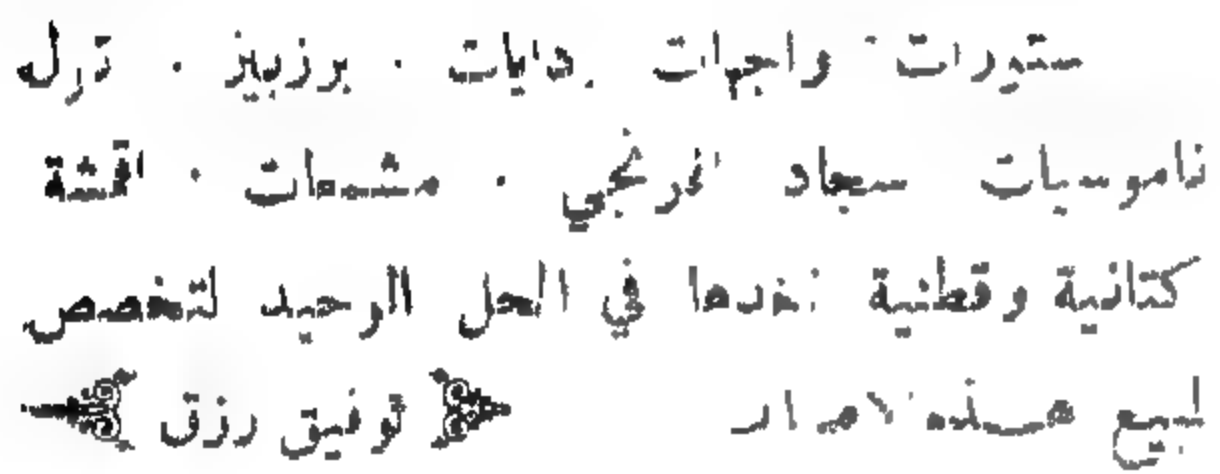 ستورات واجهات . دايات . برزبيز . تول
ناموسيات سجاد افرنجي . مشمعات . اقمشة
كتانية وقطنية تجدها في المحل الوحيد لتخصص
لبيع هذه توفيق رزق